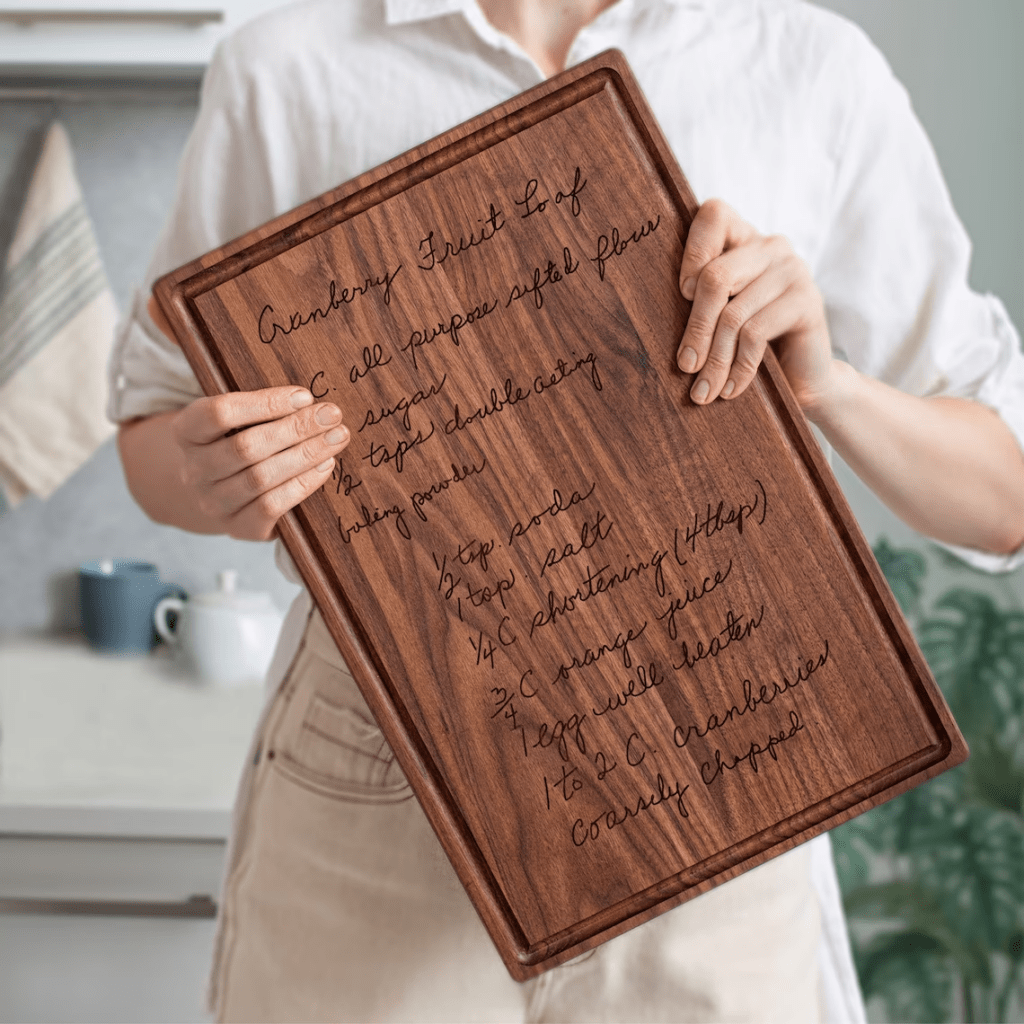 Cranberry Fruit Loaf
C. all purpose sifted flour
sugar
1/2 tsps double acting
baking powder
1/2 tsp. soda
1 tsp. salt
1/4 C shortening (4 tbsp)
3/4 C orange juice
1 egg well beaten
1 to 2 C. cranberries
coarsely chopped.